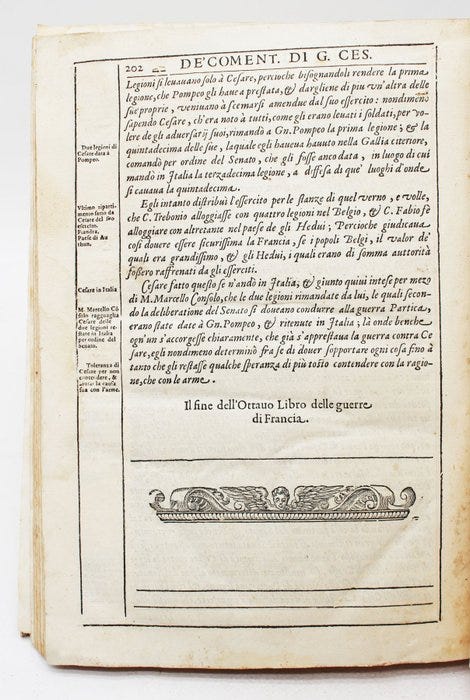 202
DE' COMENT. DI G. CES.
Legioni si leuauano solo à Cesare, percioche bisognandoli rendere la prima
legione, che Pompeo gli haueua prestata, & dargliene di piu un'altra delle
sue proprie, ueniuano à scemarsi amendue dal suo essercito: nondimeno
sapendo Cesare, ch'era noto à tutti, come gli erano leuati i soldati, per uo-
lere de gli aduersarij suoi, rimandò a Gn. Pompeo la prima legione; & la
quintadecima delle sue, laquale egli haueua hauuto nella Gallia citeriore,
comandò per ordine del Senato, che gli fosse anco data, in luogo di cui
mandò in Italia la terzadecima legione, a diffesa di que' luoghi d'onde
si cauaua la quintadecima.
Egli intanto distribuì l'essercito per le stanze di quel uerno, e uolle,
che C. Trebonio alloggiasse con quattro legioni nel Belgio, & C. Fabio fè
alloggiare con altretante nel paese de gli Hedui; Percioche giudicaua
così douere essere sicurissima la Francia, se i popoli Belgi, il ualor de'
quali era grandissimo, & gli Hedui, i quali erano di somma auttorità
fossero raffrenati da gli esserciti.
Cesare fatto questo se n'andò in Italia, & giunto quiui intese per mezo
di M. Marcello Consolo, che le due legioni rimandate da lui, le quali secon-
do la deliberatione del Senato si doueano condurre alla guerra Partica,
erano state date à Gn. Pompeo, & ritenute in Italia; là onde benche
ogn'un s'accorgesse chiaramente, che già s'apprestaua la guerra contra Ce
sare, egli nondimeno determinò fra se di douer sopportare ogni cosa fino à
tanto che gli restasse qualche speranza di più tosto contendere con la ragio-
ne, che con le arme.
Il fine dell'Ottauo Libro delle guerre
di Francia.
Due legioni di
Cesare data à
Pompeo.
Vltimo riparti-
mento fatto da
Cesare del suo
essercito.
Fiandra.
Paese di Au
thun.
Cesare in Italia
M. Marcello Cō
solo ragguaglia
Cesare delle
due legioni re
state in Italia
per ordine del
Senato.
Toleranza di
Cesare per non
contendere, &
la causa
sua con l'arme.